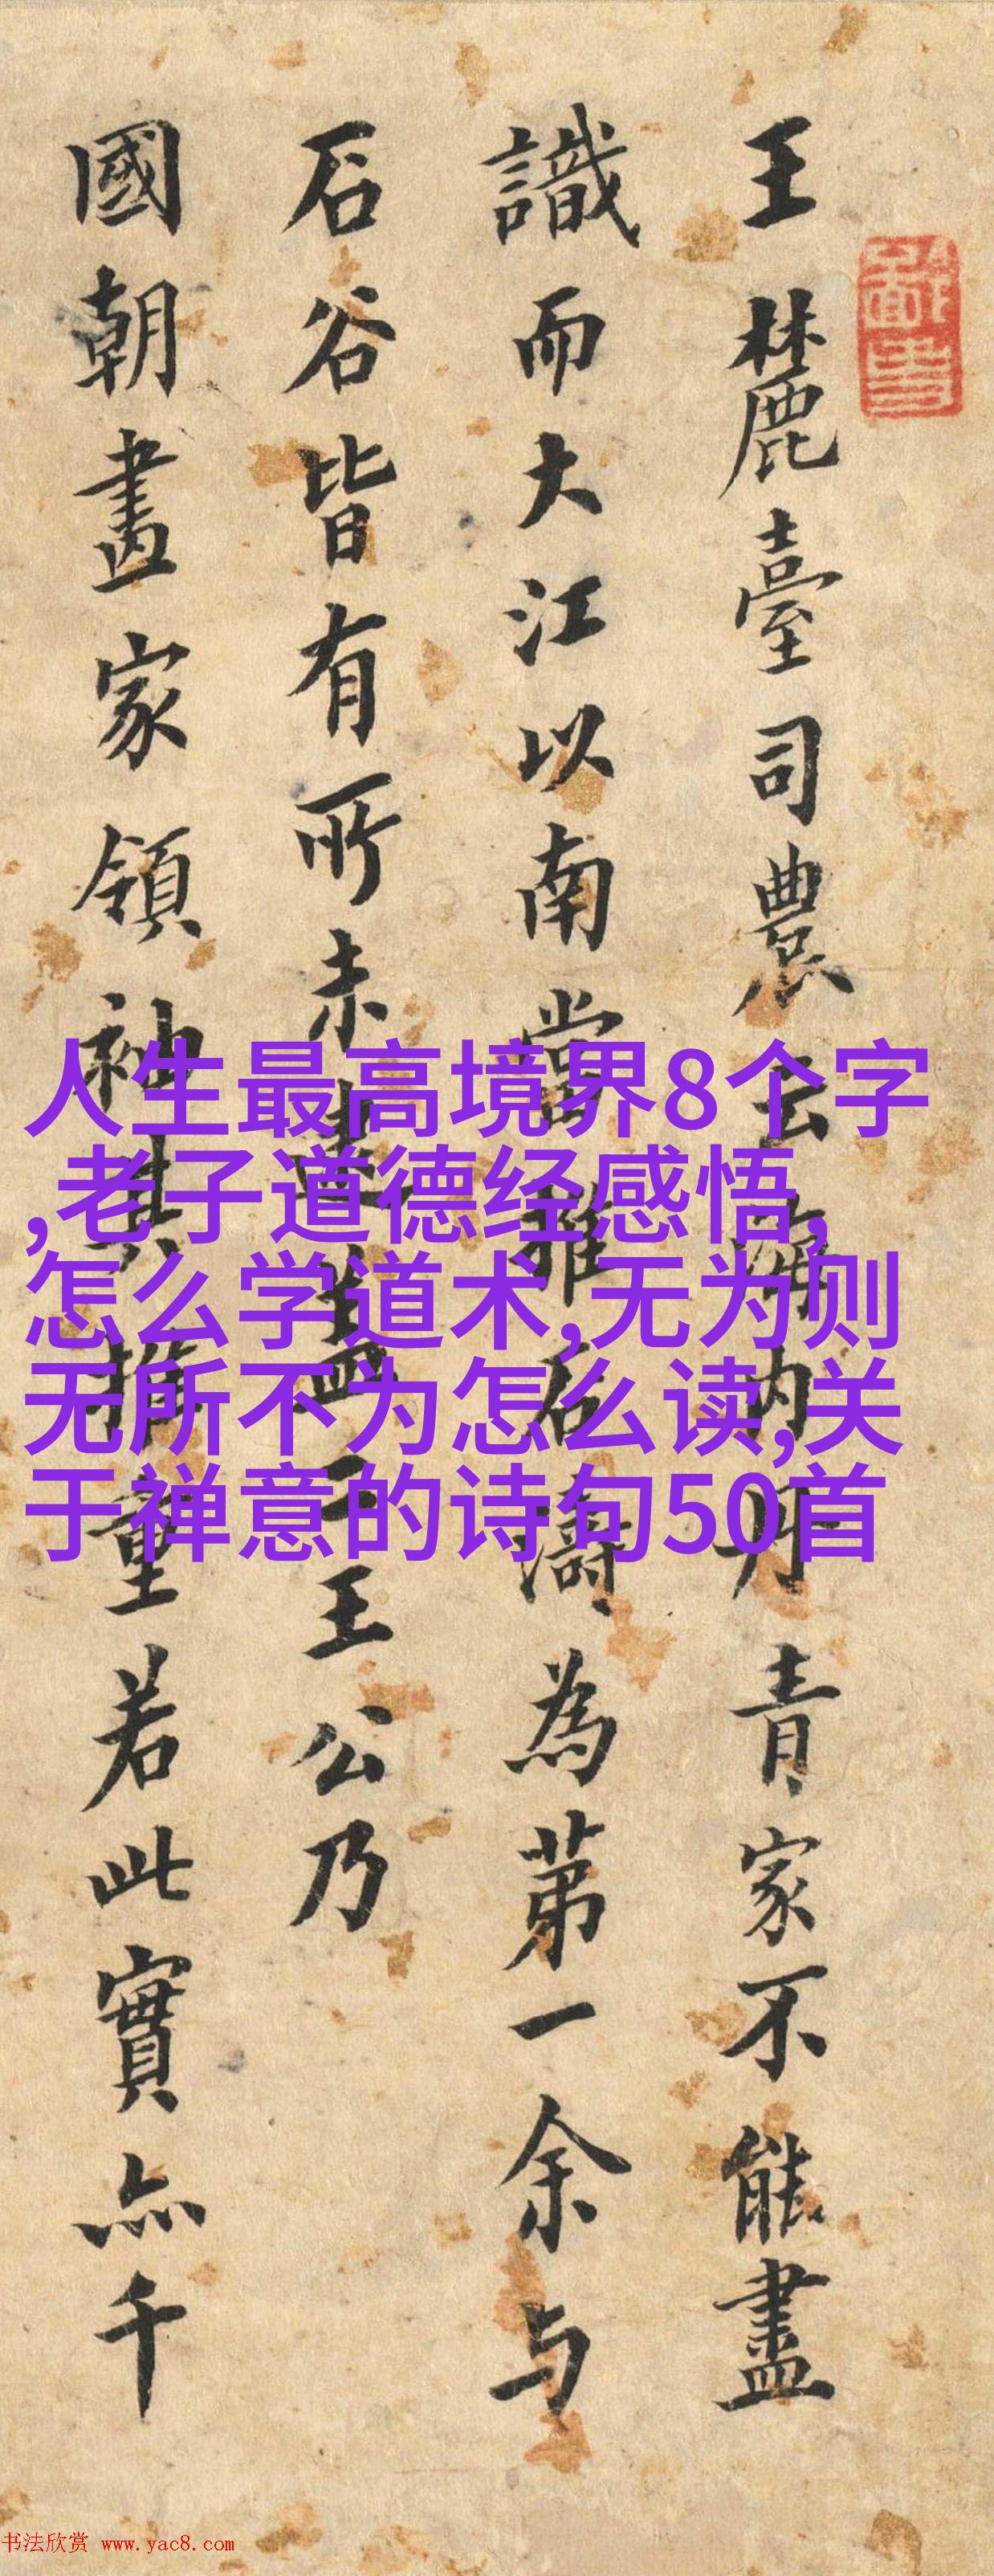 王麓臺司農云海內丹青家不能盡
識而大江以南當推石濤為第一余与
石谷皆有所未逮盖二王公乃
國朝畫家領袖其推重若此實亦千
人生最高境界8个字
,老子道德经感悟,
怎么学道术,无为则
无所不为怎么读,关
于禅意的诗句50首
书法欣赏 www.yac8.com